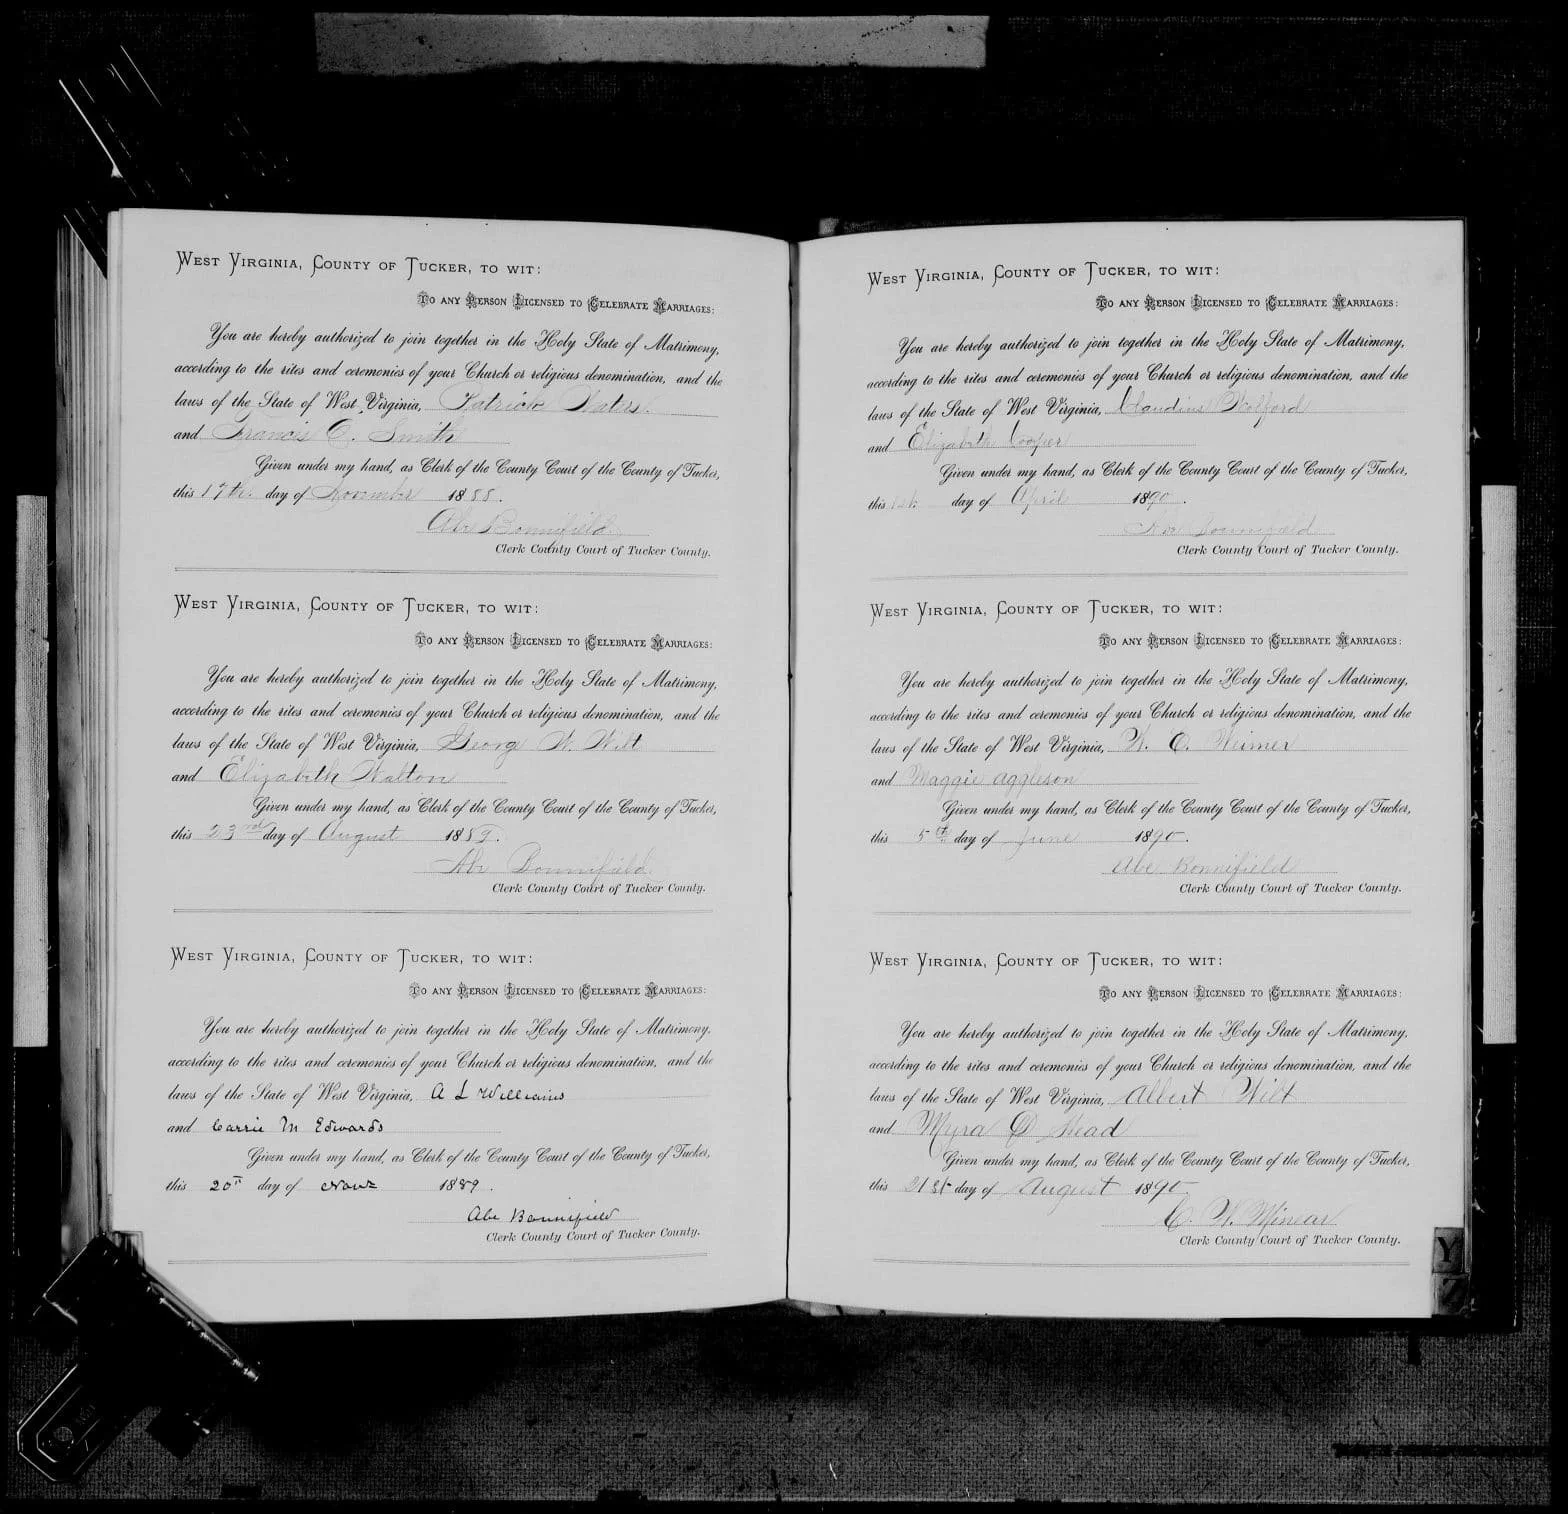 WEST VIRGINIA, COUNTY OF TUCKER, TO WIT:
TO ANY PERSON LICENSED TO CELEBRATE MARRIAGES:
You are hereby authorized to join together in the Holy State of Matrimony,
according to the rites and ceremonies of your Church or religious denomination, and the
laws of the State of West Virginia, Patrick Waters.
and Francis C. Smith
Given under my hand, as Clerk of the County Court of the County of Tucker,
this 17th. day of November 1888.
Abe Bonnifield
Clerk County Court of Tucker County.
WEST VIRGINIA, COUNTY OF TUCKER, TO WIT:
TO ANY PERSON LICENSED TO CELEBRATE MARRIAGES:
You are hereby authorized to join together in the Holy State of Matrimony,
according to the rites and ceremonies of your Church or religious denomination, and the
laws of the State of West Virginia, George W. Wilt
and Elizabeth Walton
Given under my hand, as Clerk of the County Court of the County of Tucker,
this 23rd day of August 1889.
Abe Bonnifield
Clerk County Court of Tucker County.
WEST VIRGINIA, COUNTY OF TUCKER, TO WIT:
TO ANY PERSON LICENSED TO CELEBRATE MARRIAGES:
You are hereby authorized to join together in the Holy State of Matrimony,
according to the rites and ceremonies of your Church or religious denomination, and the
laws of the State of West Virginia, A L Williams
and Carrie M Edwards
Given under my hand, as Clerk of the County Court of the County of Tucker,
this 20th day of 1889.
Abe Bonnifield
Clerk County Court of Tucker County.
WEST VIRGINIA, COUNTY OF TUCKER, TO WIT:
TO ANY PERSON LICENSED TO CELEBRATE MARRIAGES:
You are hereby authorized to join together in the Holy State of Matrimony,
according to the rites and ceremonies of your Church or religious denomination, and the
laws of the State of West Virginia, Claudius Wolford
and Elizabeth Cooper
Given under my hand, as Clerk of the County Court of the County of Tucker,
this day of April 1890.
Abe Bonnifield
Clerk County Court of Tucker County.
WEST VIRGINIA, COUNTY OF TUCKER, TO WIT:
TO ANY PERSON LICENSED TO CELEBRATE MARRIAGES:
You are hereby authorized to join together in the Holy State of Matrimony,
according to the rites and ceremonies of your Church or religious denomination, and the
laws of the State of West Virginia, W. C. Weimer
and Maggie Aggleson
Given under my hand, as Clerk of the County Court of the County of Tucker,
this 5th day of June 1890.
Abe Bonnifield
Clerk County Court of Tucker County.
WEST VIRGINIA, COUNTY OF TUCKER, TO WIT:
TO ANY PERSON LICENSED TO CELEBRATE MARRIAGES:
You are hereby authorized to join together in the Holy State of Matrimony,
according to the rites and ceremonies of your Church or religious denomination, and the
laws of the State of West Virginia, Albert Wilt
and Myra D Mead
Given under my hand, as Clerk of the County Court of the County of Tucker,
this 21st day of August 1890
C. W. Minear
Clerk County Court of Tucker County.
Y
Z